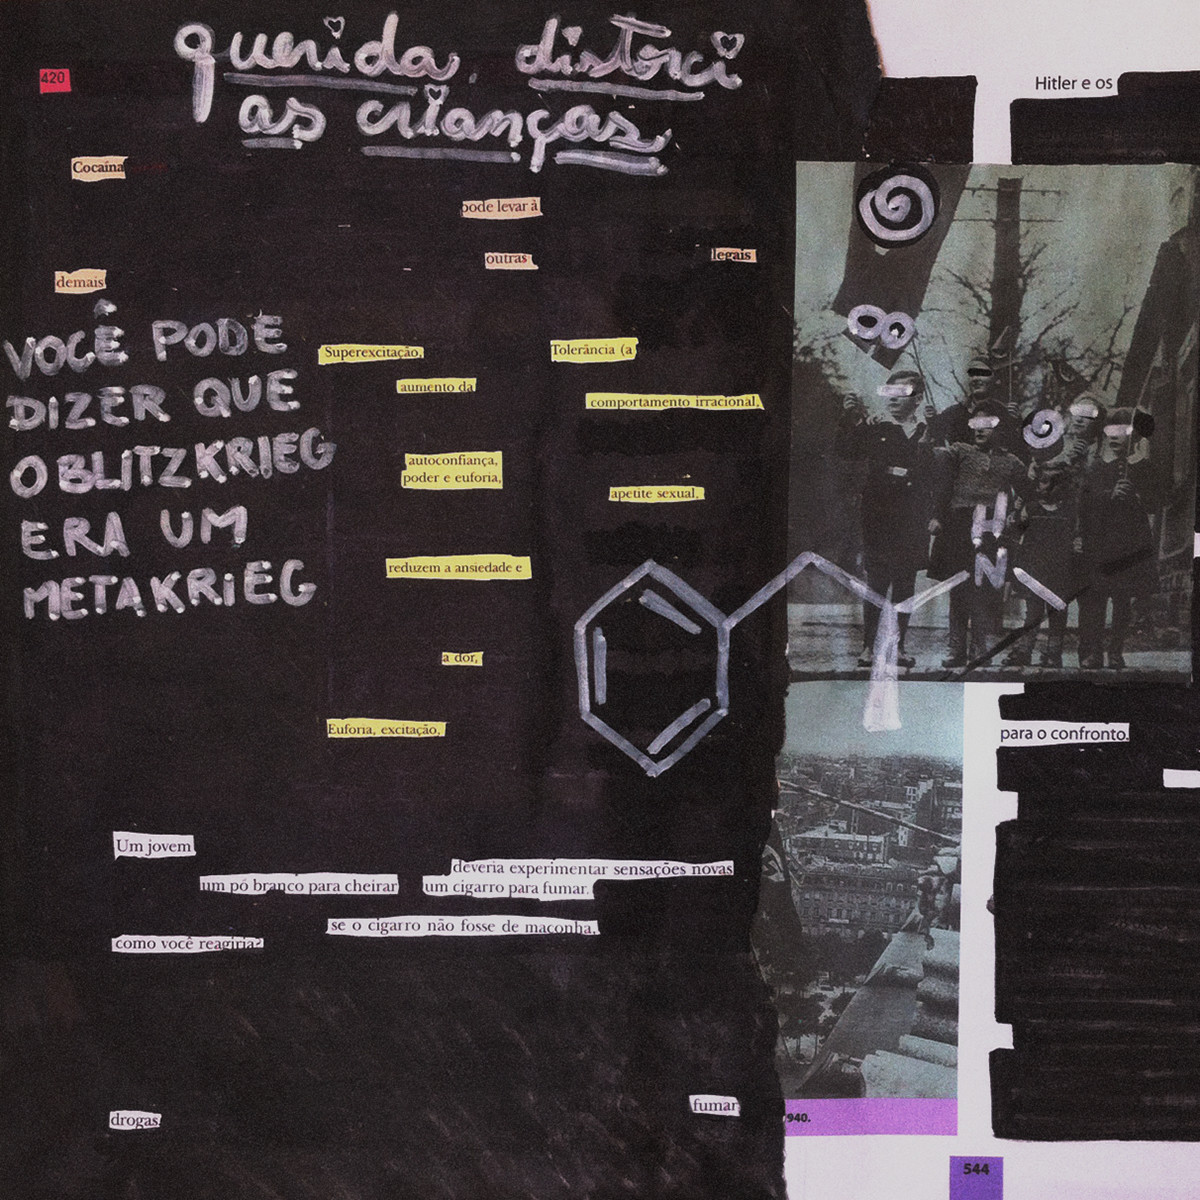 querida, distorci
as crianças
420
Hitler e os
Cocaína
pode levar à
outras
legais
demais
VOCÊ PODE
DIZER QUE
O BLITZKRIEG
ERA UM
METAKRIEG
Superexcitação,
Tolerância (a
aumento da
comportamento irracional,
autoconfiança,
poder e euforia,
apetite sexual,
reduzem a ansiedade e
H
N
a dor,
Euforia, excitação,
para o confronto.
Um jovem
deveria experimentar sensações novas
um pó branco para cheirar
um cigarro para fumar.
se o cigarro não fosse de maconha,
como você reagiria?
drogas.
fumar
940.
544